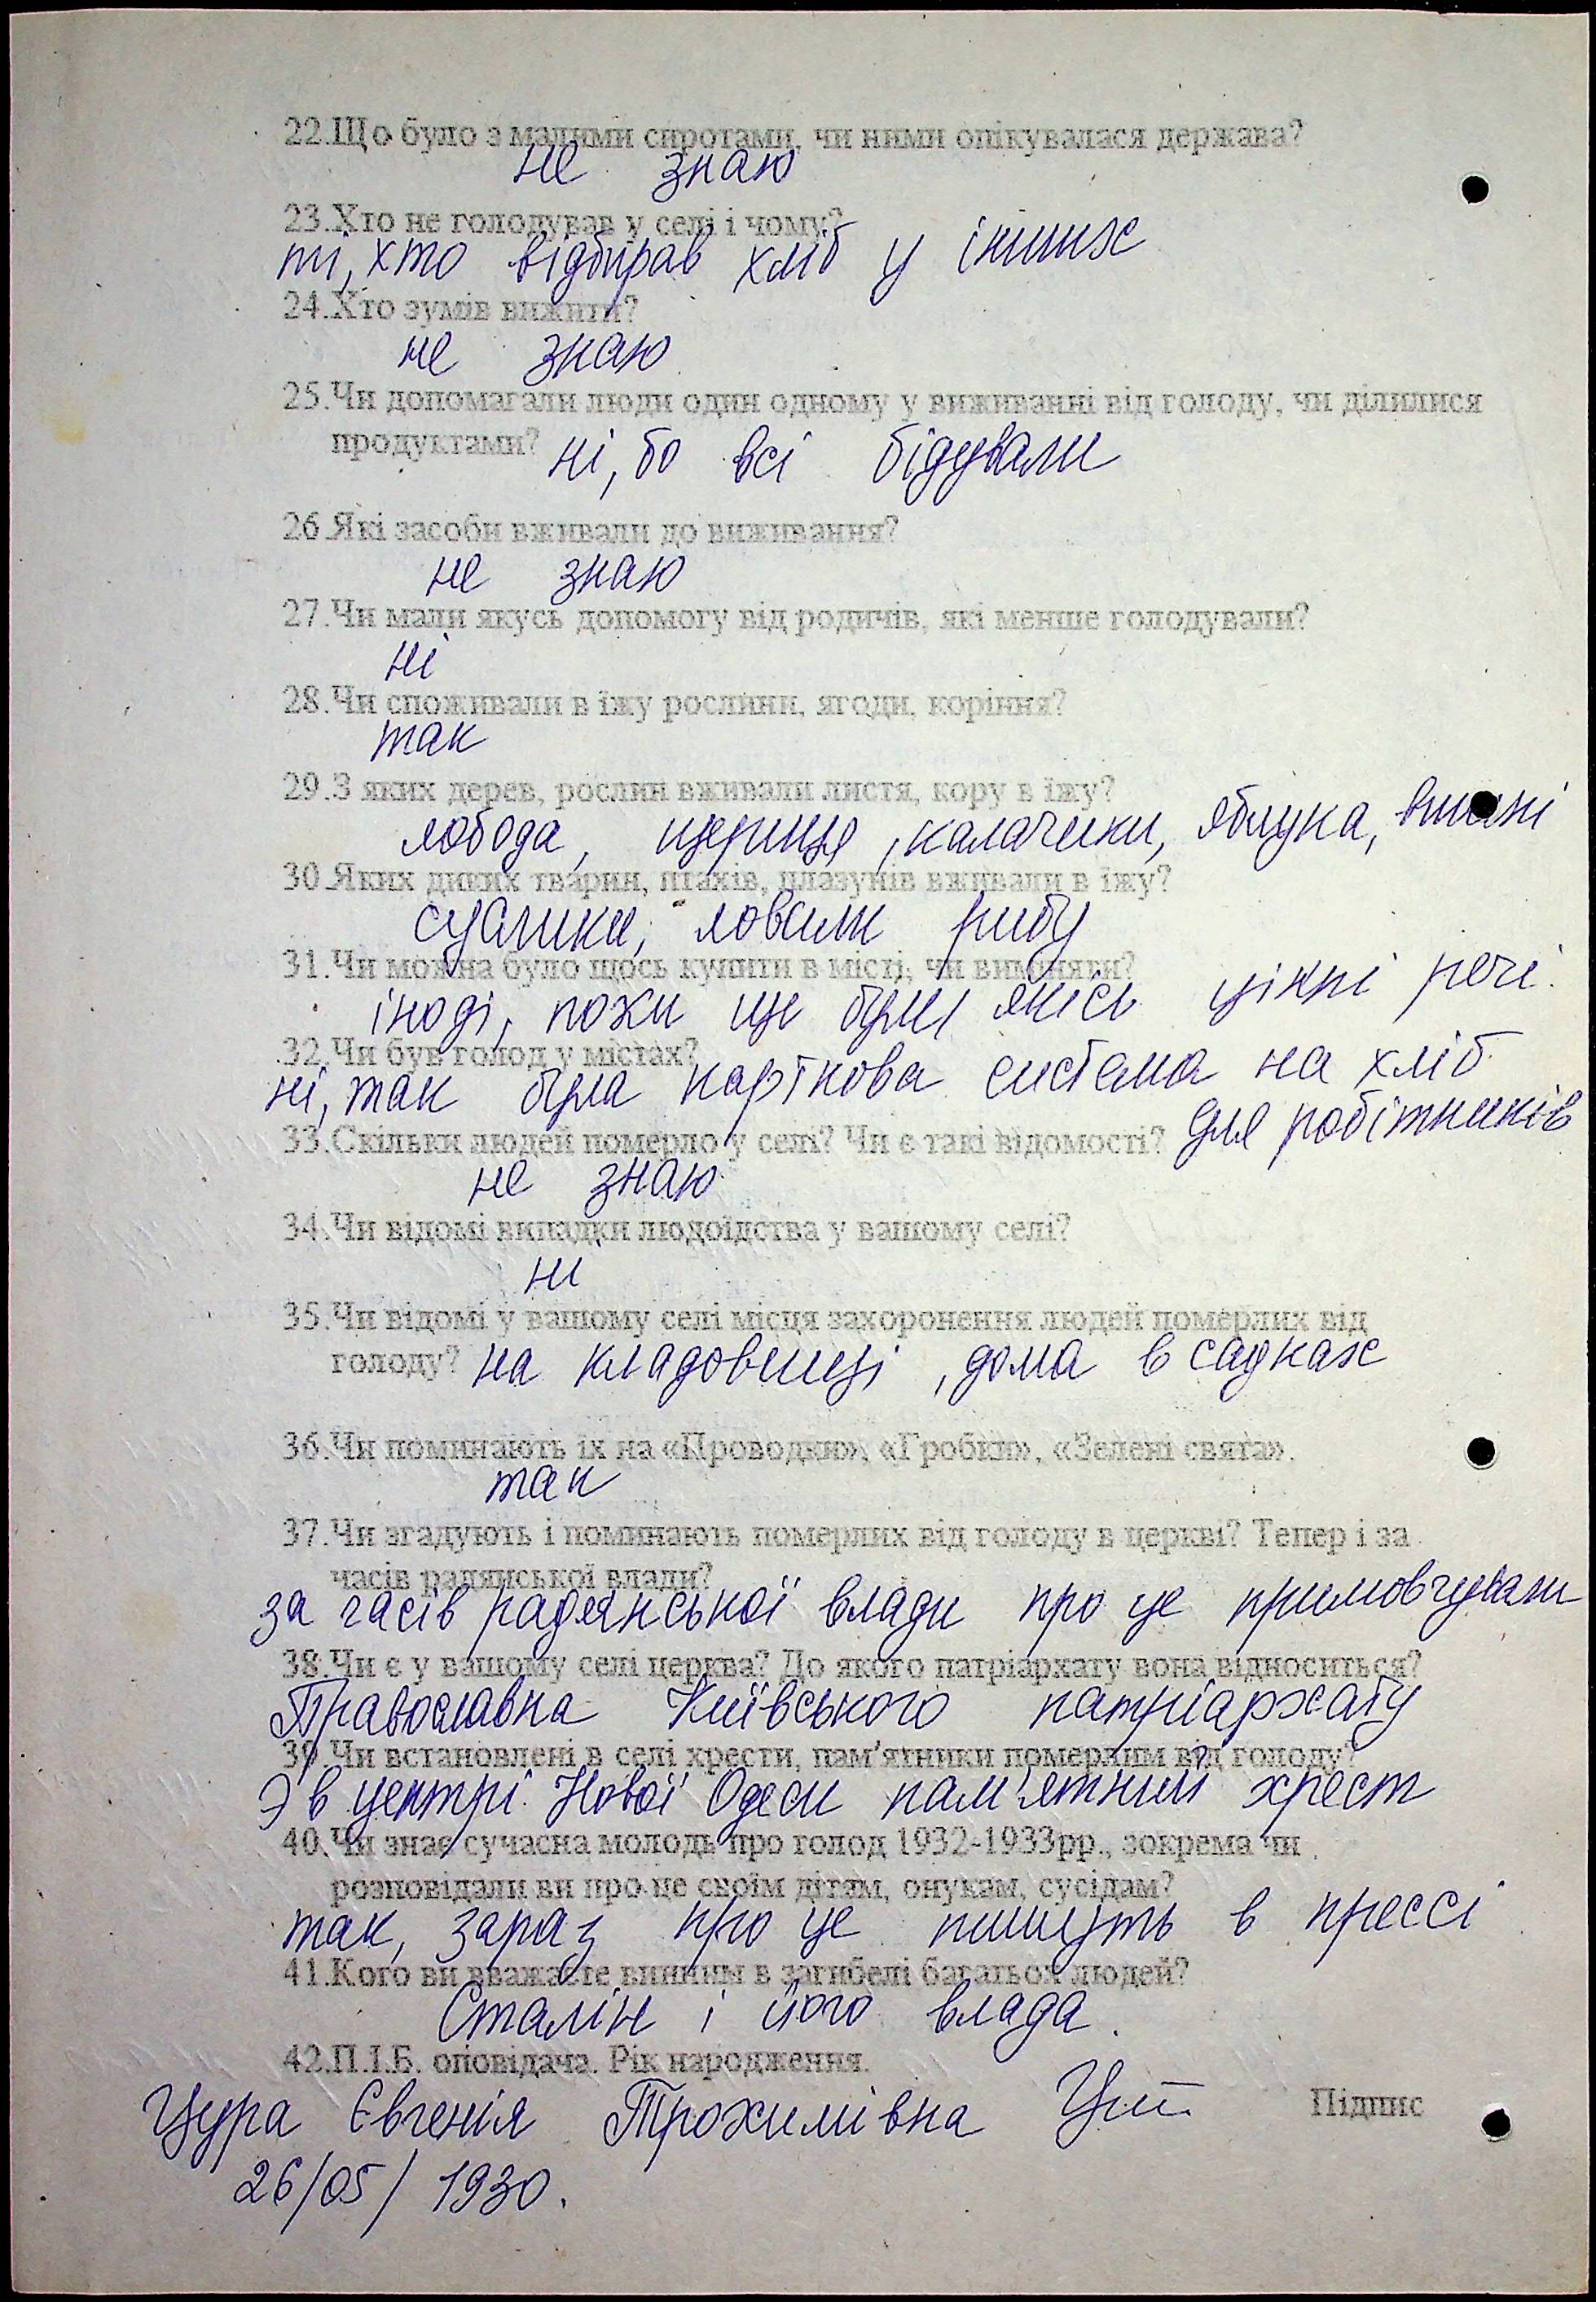 22.Що було з малими сиротами, чи ними опікувалася держава?
не знаю
23.Хто не голодував у селі і чому?
ті, хто відбирав хліб у інших
24.Хто зумів вижити?
не знаю
25.Чи допомагали люди один одному у виживанні від голоду, чи ділилися
продуктами? ні, бо всі бідували
26.Які засоби вживали до виживання?
не знаю
27.Чи мали якусь допомогу від родичів, які менше голодували?
ні
28.Чи споживали в їжу рослини, ягоди, коріння?
так
29.З яких дерев, рослин вживали листя, кору в їжу?
лобода, щериця, калачики, яблука, вишні
30.Яких диких тварин, птахів, плазунів вживали в їжу?
суслики, ловили рибу
31.Чи можна було щось купити в місті, чи виміняти?
іноді, поки ще були якісь цінні речі.
32.Чи був голод у містах?
ні, так була карткова система на хліб
для робітників
33.Скільки людей померло у селі? Чи є такі відомості?
не знаю
34.Чи відомі випадки людоїдства у вашому селі?
ні
35.Чи відомі у вашому селі місця захоронення людей померлих від
голоду? на кладовищі, дома в садках
36.Чи поминають їх на «Проводки», «Гробки», «Зелені свята».
так
37.Чи згадують і поминають померлих від голоду в церкві? Тепер і за
часів радянської влади?
за часів радянської влади про це примовчували
38.Чи є у вашому селі церква? До якого патріархату вона відноситься?
Православна Київського патріархату
39.Чи встановлені в селі хрести, пам'ятники померлим від голоду?
Э в центрі Нової Одеси пам'ятний хрест
40.Чи знає сучасна молодь про голод 1932-1933рр., зокрема чи
розповідали ви про це своїм дітям, онукам, сусідам?
так, зараз про це пишуть в прессі
41.Кого ви вважаєте винним в загибелі багатьох людей?
Сталін і його влада.
42.П.І.Б. оповідача. Рік народження.
Цура Євгенія Трохимівна Підпис
26/05/1930.